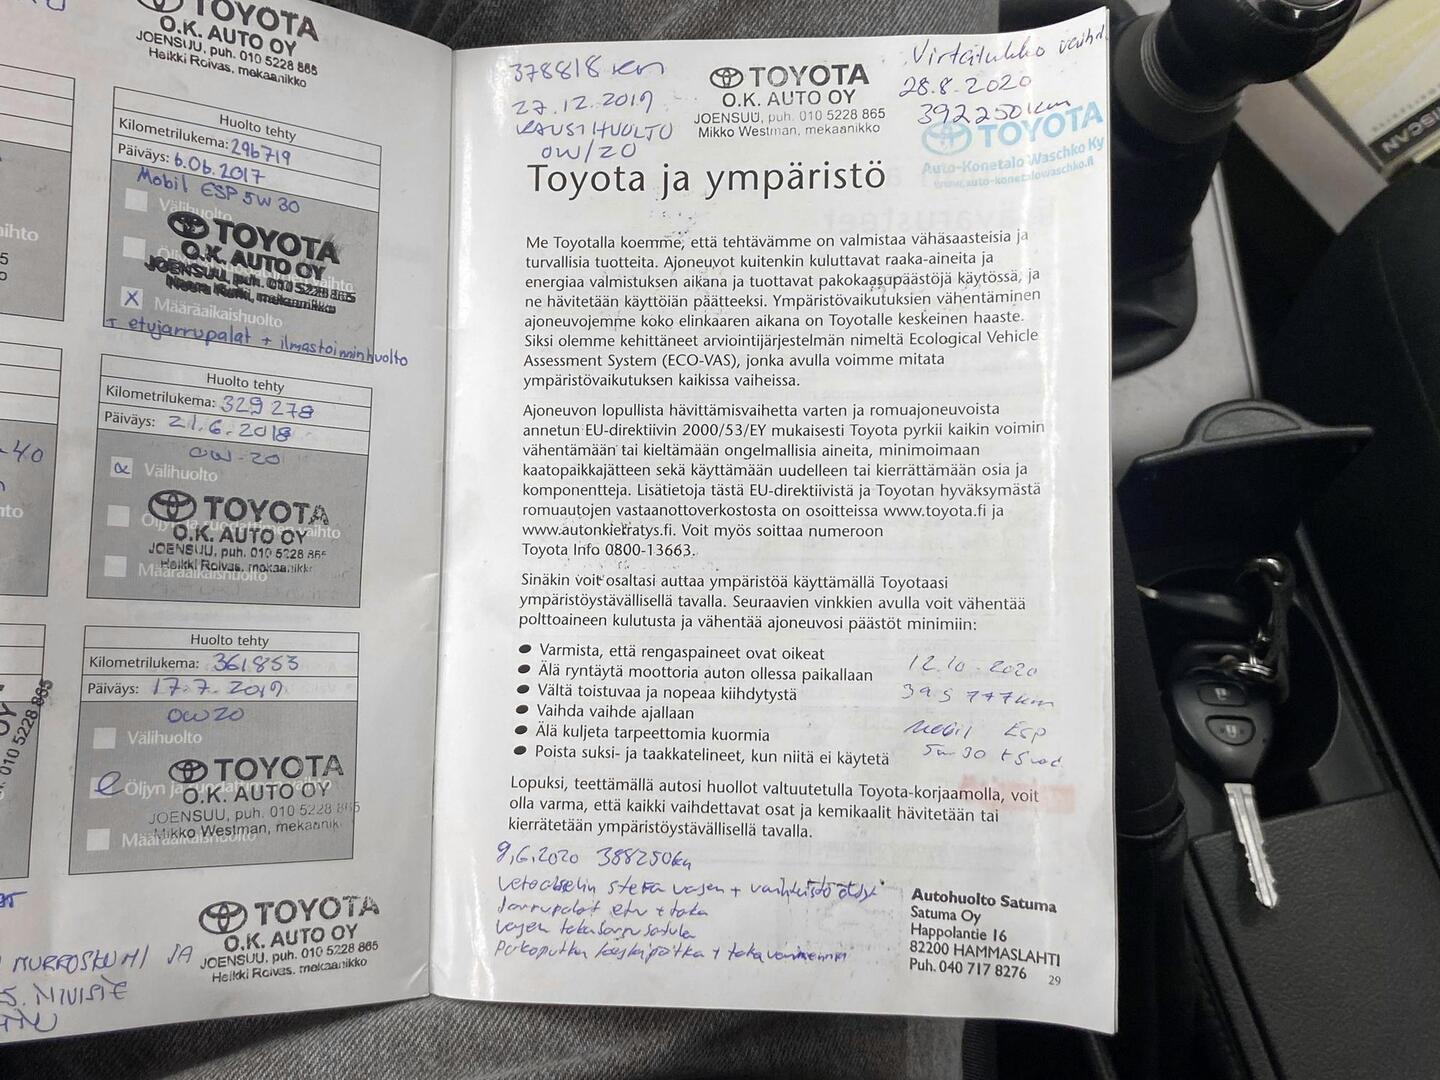 TOYOTA
O.K. AUTO OY
JOENSUU, puh. 010 5228 865
Heikki Roivas, mekaanikko
Huolto tehty
Kilometrilukema: 296719
Päiväys: 6.06.2017
Mobil ESP 5W30
Välihuolto
TOYOTA
O.K. AUTO OY
JOENSUU, puh. 010 5228 865
X Määräaikaishuolto
+ etujarrupalat + ilmastoinninhuolto
Huolto tehty
Kilometrilukema: 329 278
Päiväys: 21.6.2018
OW-20
Välihuolto
TOYOTA
O.K. AUTO OY
JOENSUU, puh. 010 5228 865
Heikki Roivas, mekaanikko
Määräaikaishuolto
Huolto tehty
Kilometrilukema: 361853
Päiväys: 17.7.2019
OW20
Välihuolto
TOYOTA
O.K. AUTO OY
JOENSUU, puh. 010 5228 865
Mikko Westman, mekaanikko
Määräaikaishuolto
TOYOTA
O.K. AUTO OY
JOENSUU, puh. 010 5228 865
Heikki Roivas, mekaanikko
JA
378818 km
27.12.2019
KAUSIHUOLTO
OW/20
TOYOTA
O.K. AUTO OY
JOENSUU, puh. 010 5228 865
Mikko Westman, mekaanikko
Virtalukko vaihd.
28.8.2020
392250km
TOYOTA
Auto-Konetalo Waschko Ky
www.auto-konetalowaschko.fi
Toyota ja ympäristö
Me Toyotalla koemme, että tehtävämme on valmistaa vähäsaasteisia ja
turvallisia tuotteita. Ajoneuvot kuitenkin kuluttavat raaka-aineita ja
energiaa valmistuksen aikana ja tuottavat pakokaasupäästöjä käytössä, ja
ne hävitetään käyttöiän päätteeksi. Ympäristövaikutuksien vähentäminen
ajoneuvojemme koko elinkaaren aikana on Toyotalle keskeinen haaste.
Siksi olemme kehittäneet arviointijärjestelmän nimeltä Ecological Vehicle
Assessment System (ECO-VAS), jonka avulla voimme mitata
ympäristövaikutuksen kaikissa vaiheissa.
Ajoneuvon lopullista hävittämisvaihetta varten ja romuajoneuvoista
annetun EU-direktiivin 2000/53/EY mukaisesti Toyota pyrkii kaikin voimin
vähentämään tai kieltämään ongelmallisia aineita, minimoimaan
kaatopaikkajätteen sekä käyttämään uudelleen tai kierrättämään osia ja
komponentteja. Lisätietoja tästä EU-direktiivistä ja Toyotan hyväksymästä
romuautojen vastaanottoverkostosta on osoitteissa www.toyota.fi ja
www.autonkierratys.fi. Voit myös soittaa numeroon
Toyota Info 0800-13663.
Sinäkin voit osaltasi auttaa ympäristöä käyttämällä Toyotaasi
ympäristöystävällisellä tavalla. Seuraavien vinkkien avulla voit vähentää
polttoaineen kulutusta ja vähentää ajoneuvosi päästöt minimiin:
● Varmista, että rengaspaineet ovat oikeat
● Älä ryntäytä moottoria auton ollessa paikallaan
● Vältä toistuvaa ja nopeaa kiihdytystä
● Vaihda vaihde ajallaan
● Älä kuljeta tarpeettomia kuormia
● Poista suksi- ja taakkatelineet, kun niitä ei käytetä
12.10.2020
395 777km
Mobil ESP
5w30
Lopuksi, teettämällä autosi huollot valtuutetulla Toyota-korjaamolla, voit
olla varma, että kaikki vaihdettavat osat ja kemikaalit hävitetään tai
kierrätetään ympäristöystävällisellä tavalla.
9.6.2020 388250km
Vetoakselin stefa vasen + vaihteistoöljyt
Jarrupalat etu + taka
vasen takajarrusatula
Pakoputken keskipätkä + takavaimennin
Autohuolto Satuma
Satuma Oy
Happolantie 16
82200 HAMMASLAHTI
Puh. 040 717 8276
29